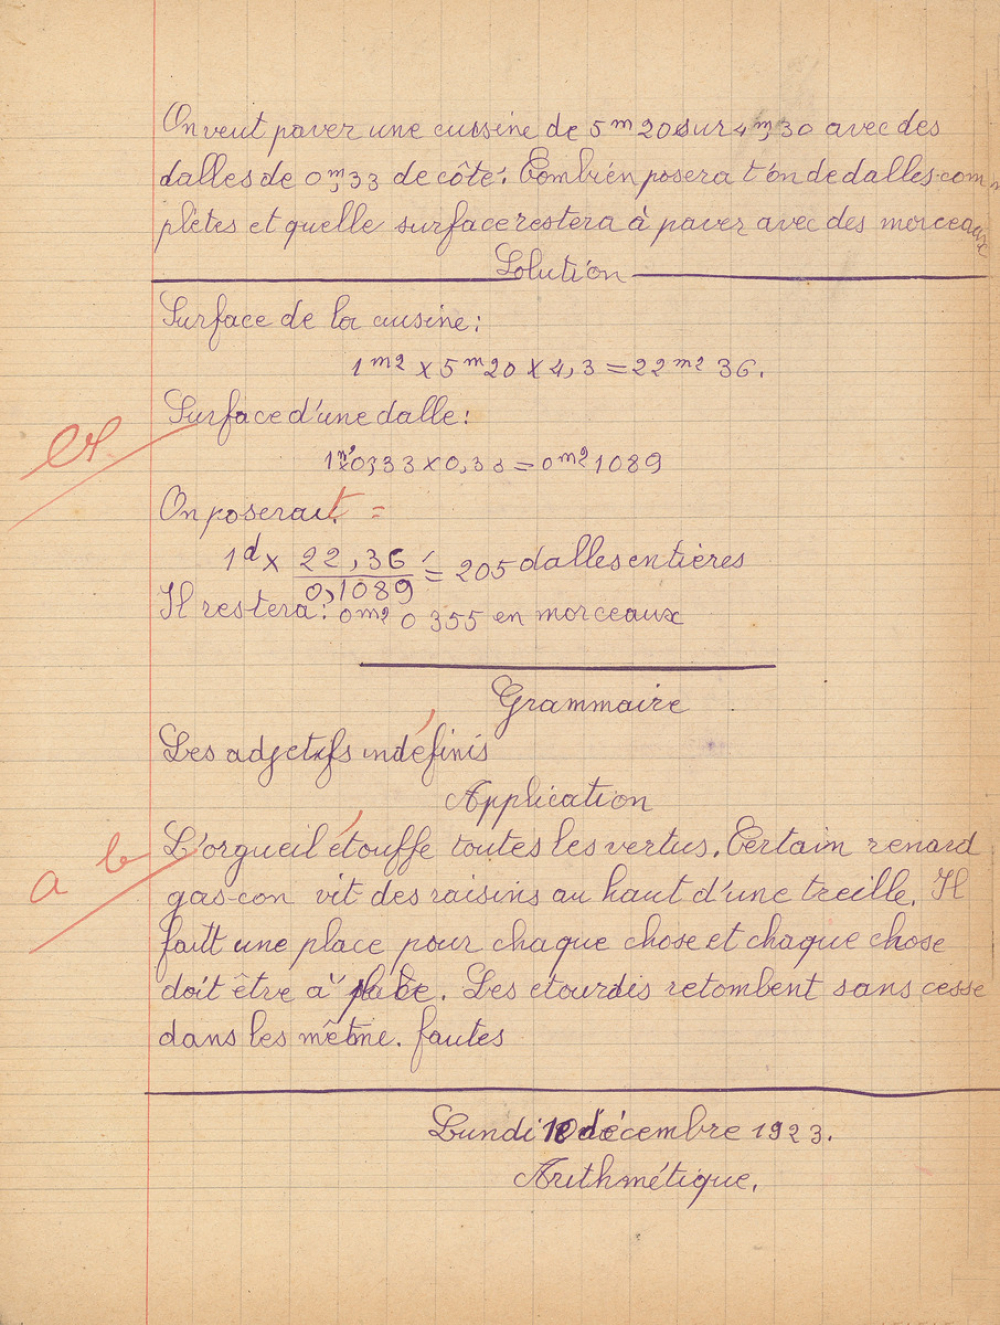 On veut paver une cuisine de 5m20 sur 4m,30 avec des
dalles de 0m,33 de côté. Combien posera t'on de dalles com
plètes et quelle surface restera à paver avec des morceaux
Solution
Surface de la cuisine :
1m2 x 5m20 x 4,3 = 22m2 36.
Surface d'une dalle :
1m2 x 0,33 x 0,33 = 0m2 1089
On poserait =
1d x 22,36 / 0,1089 = 205 dalles entières
Il restera : 0m2 0355 en morceaux
Grammaire
Les adjectifs indéfinis
Application
a b L'orgueil étouffe toutes les vertus. Certain renard
gascon vit des raisins au haut d'une treille. Il
faut une place pour chaque chose et chaque chose
doit être à place. Les étourdis retombent sans cesse
dans les même. fautes
Lundi 10 décembre 1923.
Arithmétique.